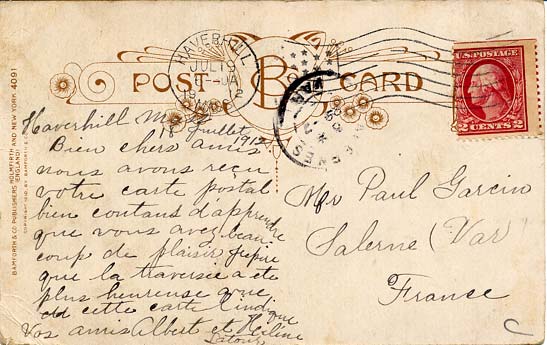 HAVERHILL
JUL 19
MASS
POST CARD
B
U.S. POSTAGE
2 CENTS 2
BAMFORTH & CO PUBLISHERS HOLMFIRTH (ENGLAND) AND NEW YORK. 4091
Haverhill
Juillet 1912
Bien chers amis
nous avons reçu
votre carte postal
bien contans d'apprendre
que vous avez beau
coup de plaisir
que la traversée a ete
plus heureuse que
cette carte l'indique
Vos amis Albert et Héline
Latour
Mr Paul Garcin
Salerne (Var)
France